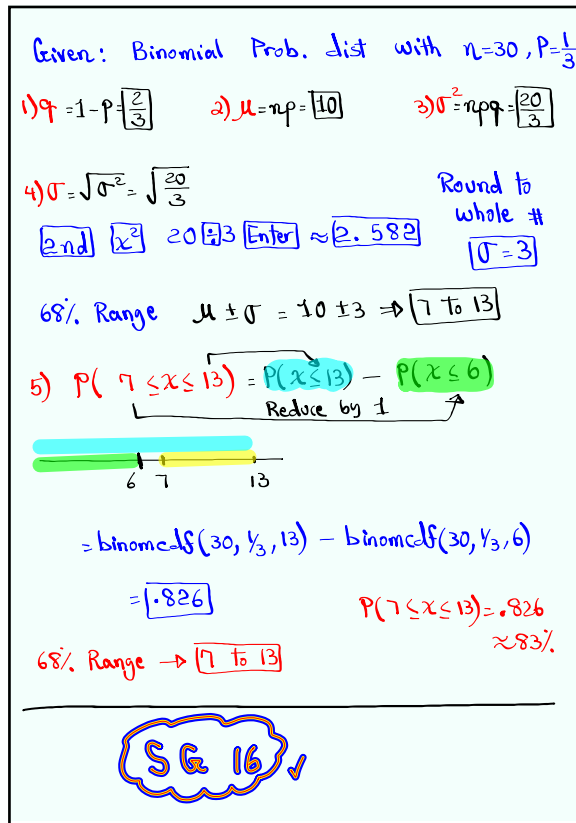 Given: Binomial Prob. dist with n=30, P=1/3
1) q = 1-P = 2/3 2) μ = np = 10 3) σ² = npq = 20/3
4) σ = √σ² = √20/3
Round to
whole #
2nd x² 20 ÷ 3 Enter ≈ 2.582
σ = 3
68% Range μ ± σ = 10 ± 3 ⇒ 7 To 13
5) P( 7 ≤ x ≤ 13) = P(x ≤ 13) - P(x ≤ 6)
Reduce by 1
6 7 13
= binomcdf(30, 1/3, 13) - binomcdf(30, 1/3, 6)
= .826
P(7 ≤ x ≤ 13) = .826
≈ 83%
68% Range → 7 to 13
SG 16 ✓